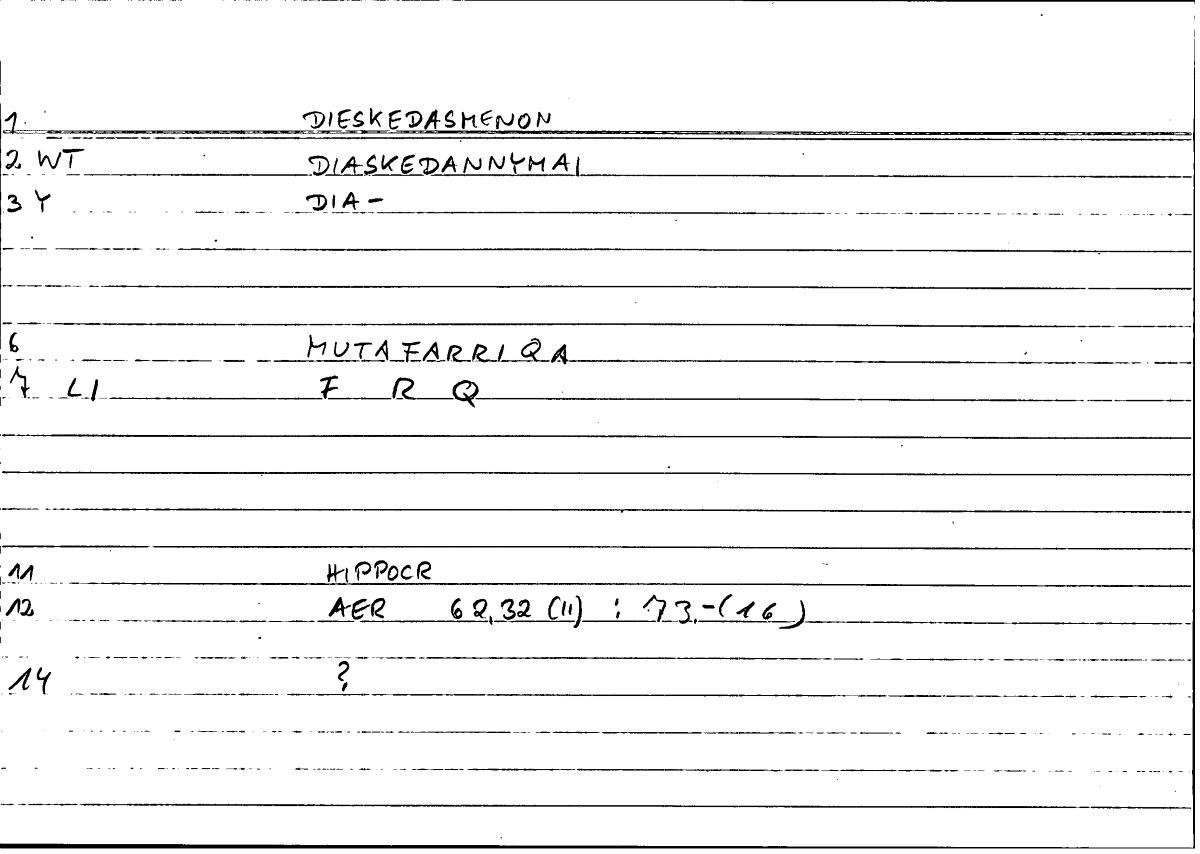 1. DIESKEDASMENON
2 WT DIASKEDANNYMAI
3 Y DIA-
6 MUTAFARRIQA
7 LI F R Q
11 HIPPOCR
12 AER 62,32 (11) : 73,-(16)
14 ?